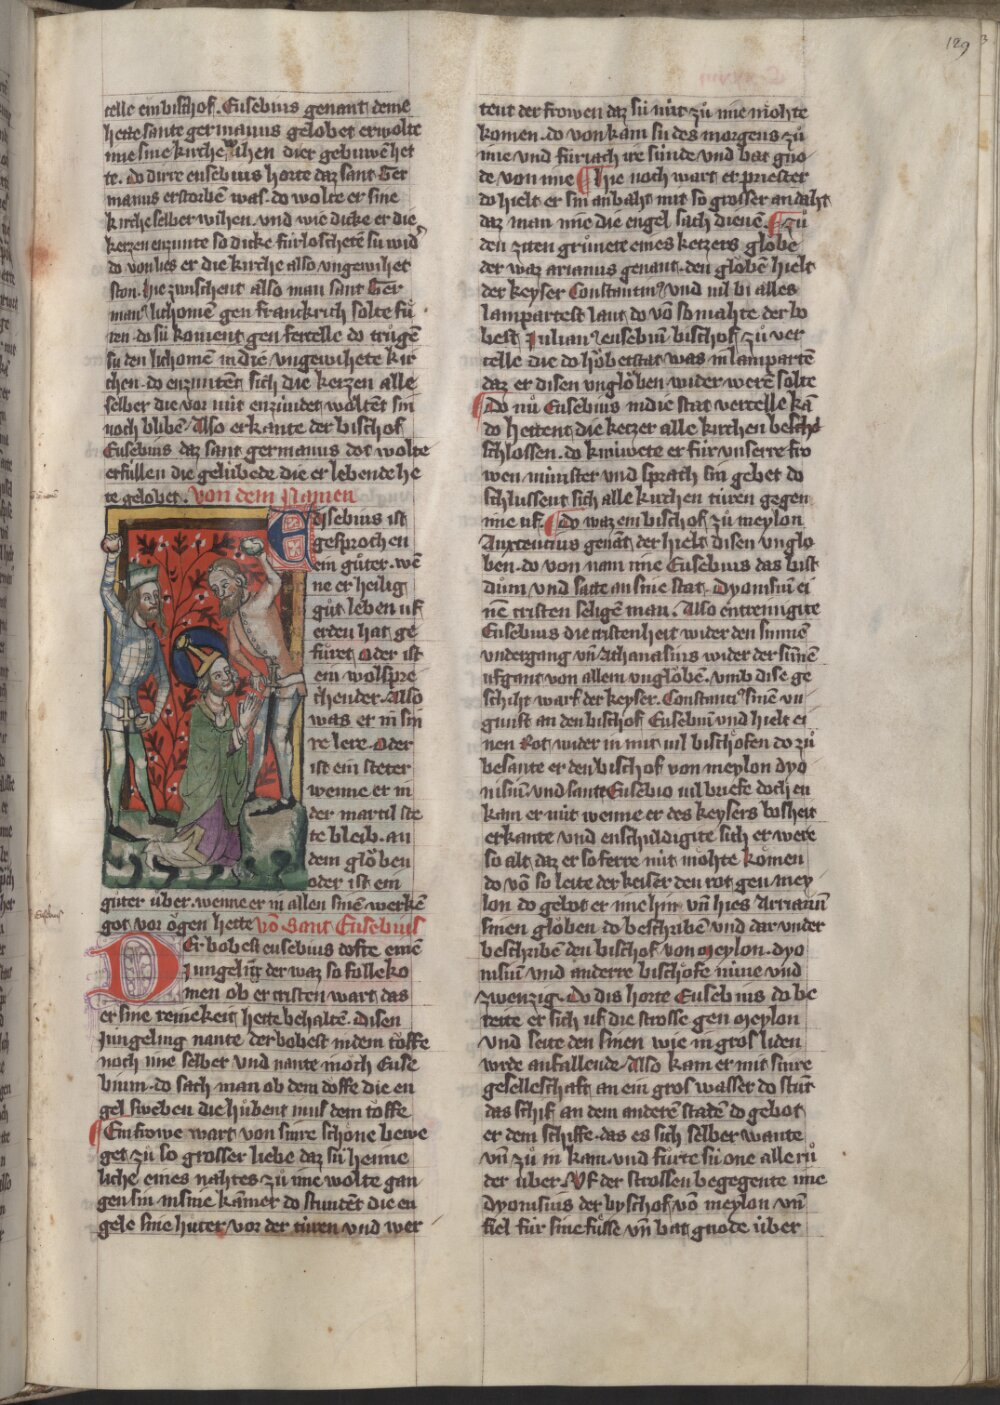 129
telle ein bischof. Eusebius genant deme
hette sante germanus gelobet er wolte
ime sine kirche wihen die er gebuwen het
te. Do dirre eusebius horte daz sant Ger
manus erstorbē was. do wolte er sine
kirche selber wihen. vnd wie dicke er die
kerzen enzunte so dicke fürloschetē sü wid̉
do von lies er die kirche also vngewihet
ston. Hie zwischent also man sant Ger
manꝰ lichomē gen franckrich solte fů
ren. do sü koment gen fercelle do trůgē
sü den lichomē in die vngewihete kir
chen. do enzuntēt sich die kerzen alle
selber die vor nüt enzündet woltēt sin
noch blibē. Also erkante der bischof
Eusebius daz sant germanus dot wolte
erfüllen die gelübede die er lebende he
te gelobet. von dem Namen
EVsebius ist
gesprochen
ein gůter. wē
ne er heilig
gůt leben uf
erden hat ge
füret. Oder ist
ein wolspre
chender. Also
was er in sin
re lere. Oder
ist ein steter
wenne er in
der martil ste
te bleib. an
dem glöben
oder ist ein
gůter über. wenne er in allen sinē werkē
got vor ögen hette vō Sant Eusebius
DEr bobest eusebius dofte einē
Jungeling der waz so folleko
men ob er cristen wart das
er sine reinekeit hette behaltē. Disen
Jungeling nante der bobest in dem töffe
noch ime selber vnd nante in och Euse
bium. do sach man ob dem doffe die en
gel sweben die hůbent in us dem töffe
Ein frowe wart von sinre schöne bewe
get zů so grosser liebe daz sü heime
liche eines nahtes zů ime wolte gan
gen sin in sine kamer do stundēt die en
gele sine hüter vor der türen vnd wer
tent der frowen daz sü nüt zů ime mohte
komen. do von kam sü des morgens zů
ime vnd füriach ire sünde vnd bat gno
de von ime Hie noch wart er priester
do hielt er sin anbaht mit so grosser andaht
daz man ime die engel sach dienē. Zů
den ziten grůnete eines ketzers globe
der waz arianus genant. den glöbē hielt
der keyser Constantinꝰ vnd vil bi alles
lampartest lant do vō so mahte der bo
best Julianꝰ eusebiū bischof zů ver
celle die do höbetstat was in lampartē
daz er disen vnglöben wider werē solte
Do nů Eusebius in die stat vercelle kā
do hettent die ketzer alle kirchen besch
schlossen. do knuwete er für vnserre fro
wen münster vnd sprach sin gebet do
schlussent sich alle kirchen türen gegen
ime uf. Do waz ein bischof zů meylon
Auxencius genāt der hielt disen vnglo
ben. do von nam ime Eusebius das bist
dům vnd satte an sine stat. Dyonisiū ei
nē cristen seligē man. Also entreinigite
Eusebius die cristenheit wider den sunnē
vndergang vn̄ Athanasius wider der sūnē
ufgant von allem vnglöbē. vmb dise ge
schiht warf der keyser. Constanciꝰ sinē vn
gunst an den bischof Eusebiū vnd hielt ei
nen Rot wider in mit vil bischöfen do zů
besante er den bischof von meylon dyo
nisiū. vnd sante Eusebio vil briefe doch en
kam er nüt wenne er des keysers bosheit
erkante vnd enschuldigite sich er were
so alt daz er so ferre nüt möhte komen
do vō so leite der keiser den rot gen mey
lon do gebot er ime hin vn̄ hies Arrianū
sinen glöben do beschribē vnd dar vnder
beschribē den bischof von meylon. dyo
nisiū vnd anderre bischöfe nüne vnd
zwenzig. Do dis horte Eusebius do be
reite er sich uf die strosse gen meylon
vnd seite den sinen wie in gros liden
wrde anfallende. Also kam er mit sinre
geselleschaft an ein gros wasser do stůt
das schif an dem anderē stadē do gebot
er dem schiffe. das es sich selber wante
vn̄ zů in kam. vnd fürte sü one alle rů
der über. Vf der strossen begegente ime
dyonisius der byschof vō meylon vn̄
fiel für sine füsse vn̄ bat gnode über